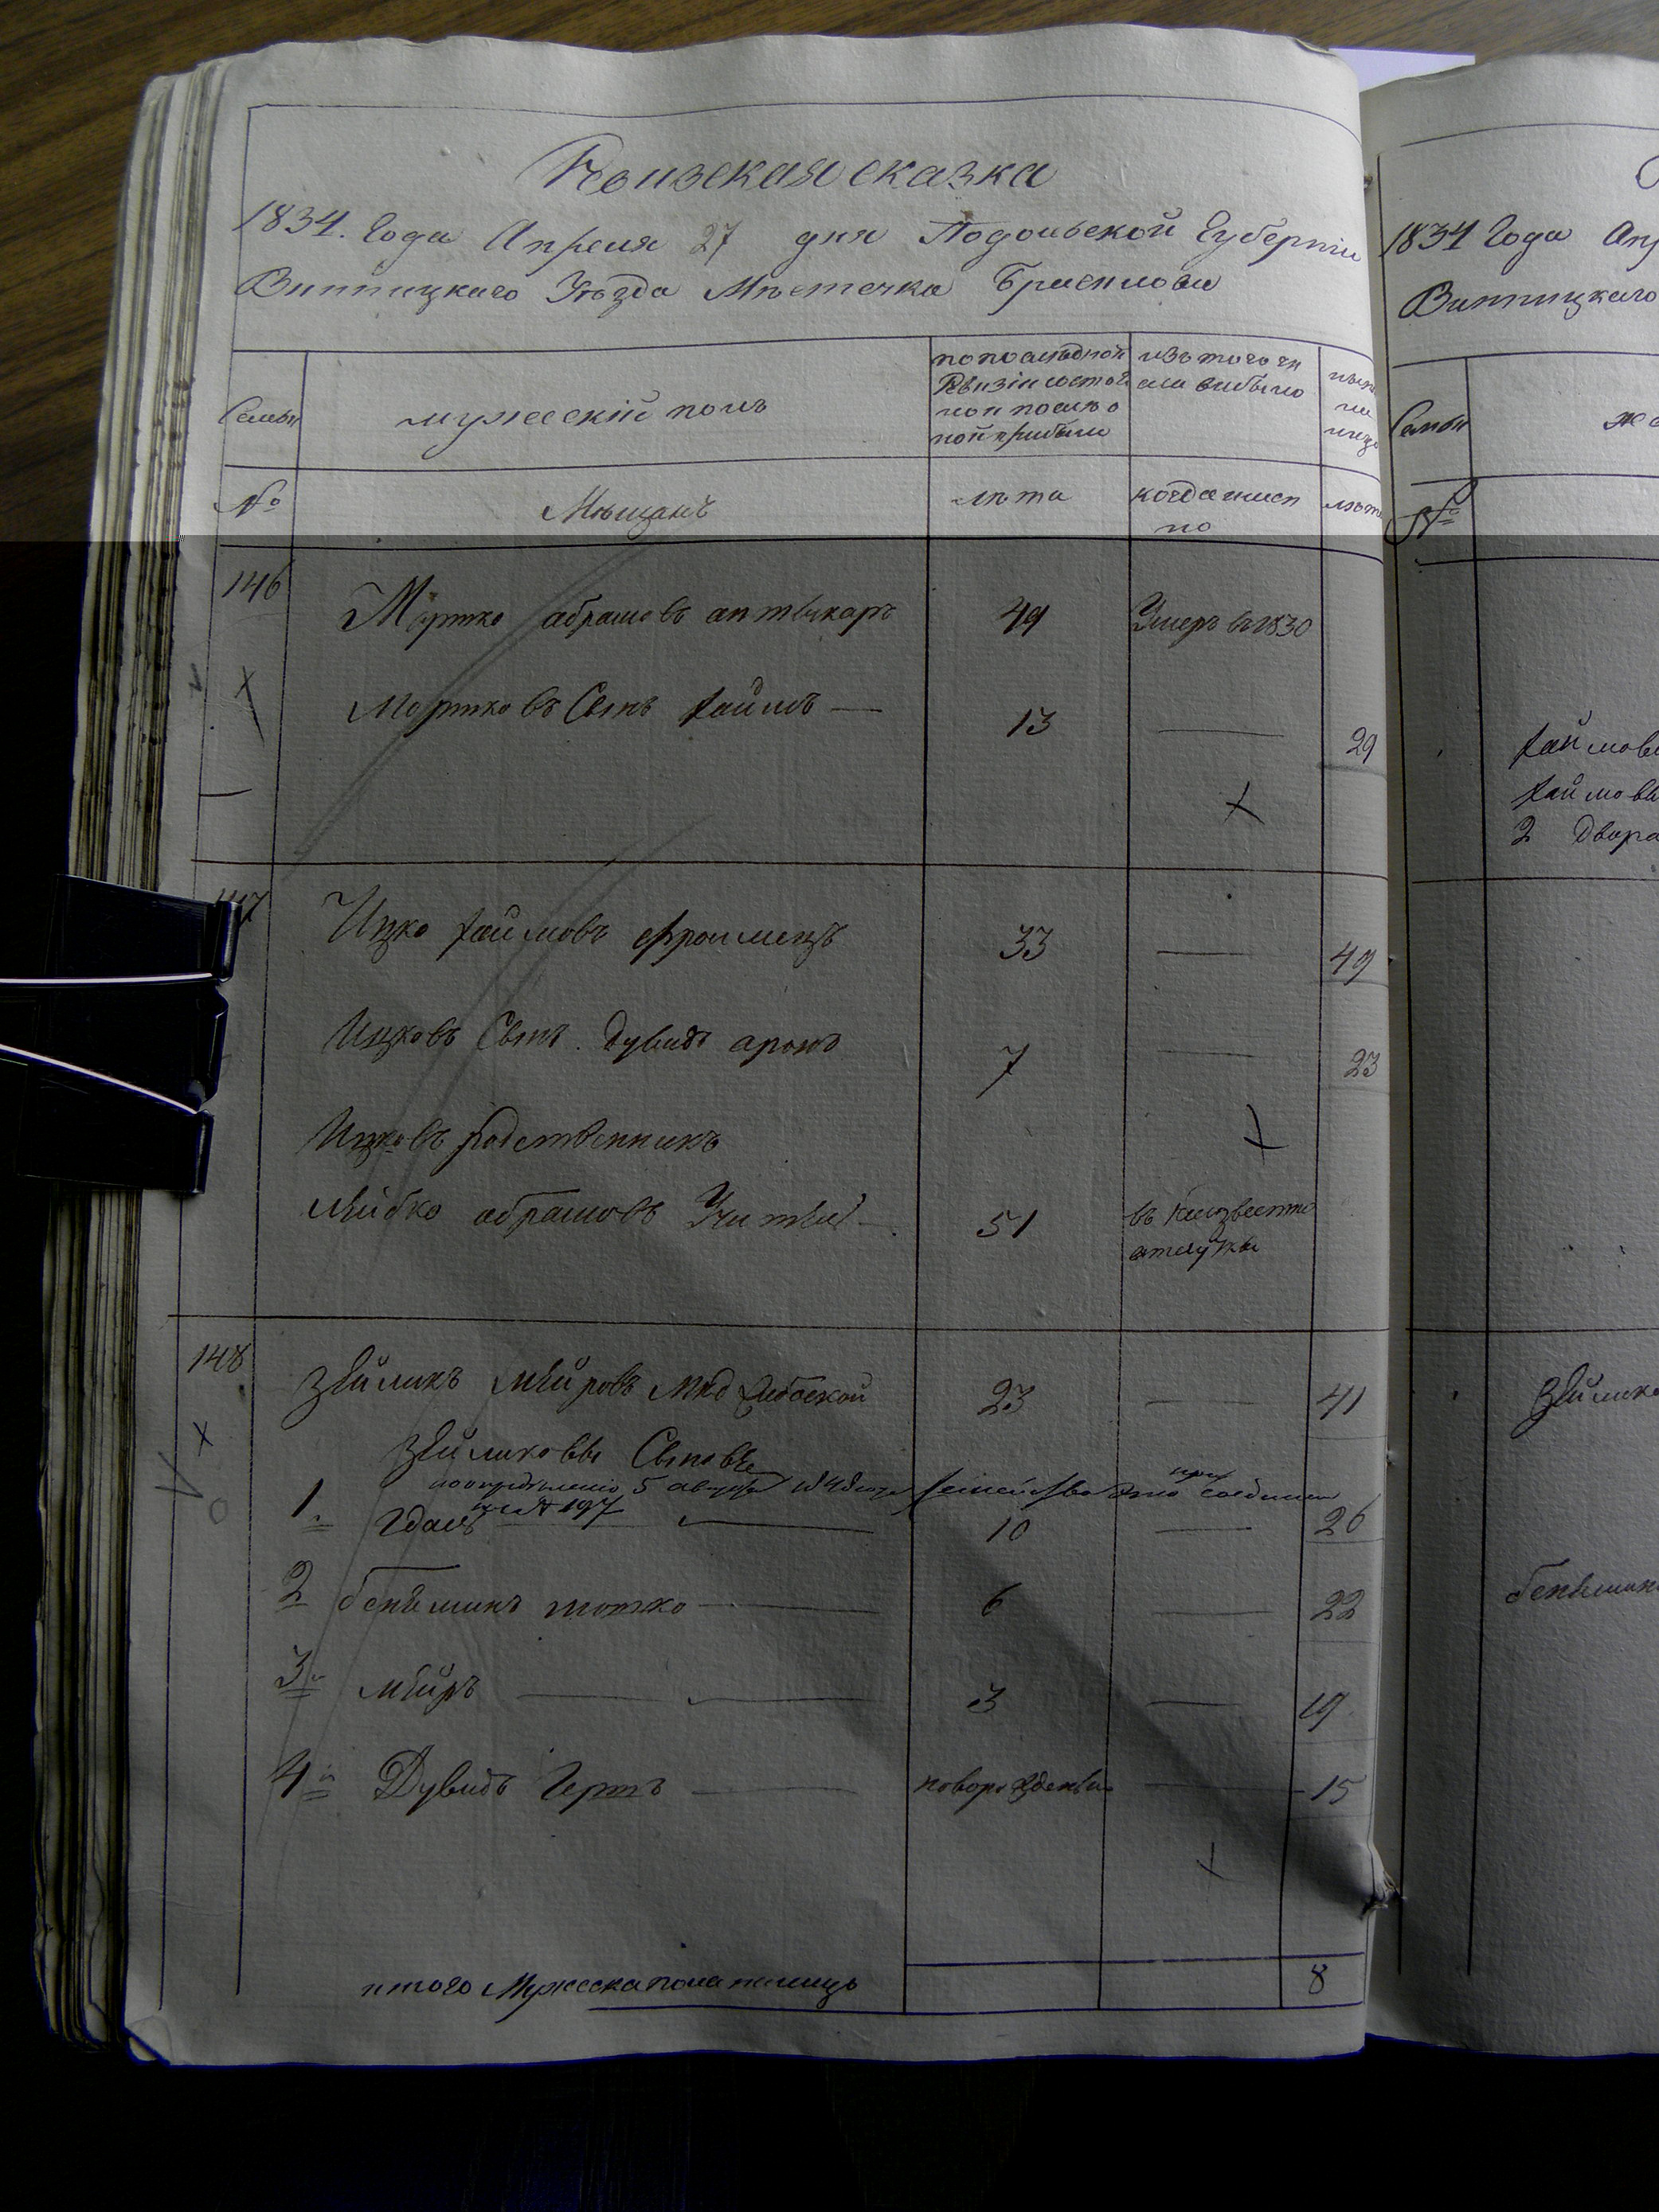 Ревизская сказка
1834. Года Апреля 27 дня Подольской Губернии
Винницкаго Уѣзда Мѣстечка Браилова
Семьи
мужескій полъ
по последной
Ревизіи состоя
ло и после о
ной прибыло
изъ того чи
сла выбыло
ныне
на
лицо
№
Мѣщанъ
лѣта
когда имен
но
лѣта
146
Мортко абрамовъ аптыкаръ
49
Умеръ въ 1830
Мортковъ Сынъ Хаимъ
13
29
147
Ицко Хаймовъ Фроимецъ
33
49
Ицковъ Сынъ Дувидъ аронъ
7
23
Ицковъ родственникъ
Лейбко абрамовъ Учитель
51
въ неизвестно
отлучки
148
Зейликъ Мейровъ
23
41
Зейликовы Сыновье
5 августа 1848 года семейство это соединено
№ 197
1.
Гдаль
10
26
2
беньминъ мотко
6
22
3
Мейръ
3
19
4
Дувидъ Герть
новорожденый
15
итого Мужеска пола налицо
8
1834 Года Апр
Винницкаго
Семьи
же
№
Хаймовы
Хаймовы
2 Двора
Зейлико
беньмин